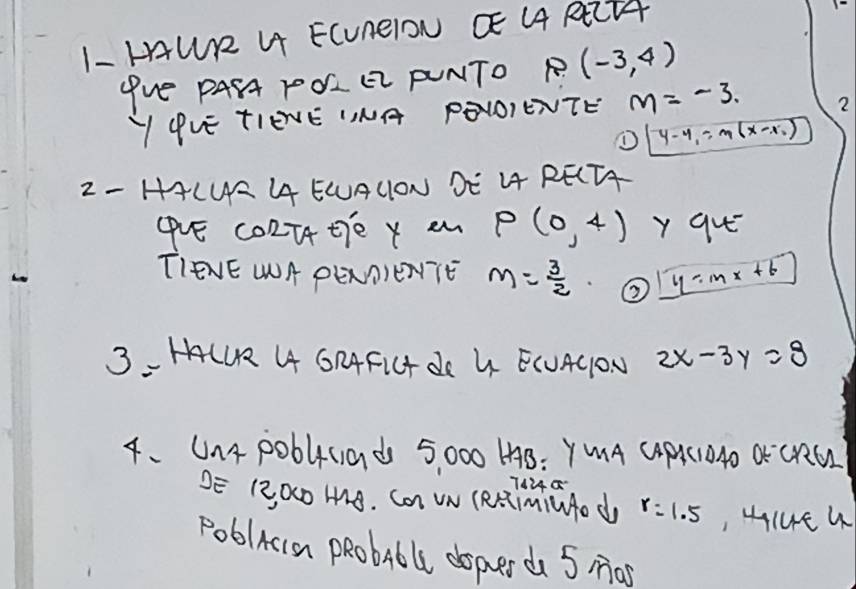 1- HALLAR LA ECUACION DE LA RECTA
QUE PASA POR EL PUNTO P (-3,4)
Y QUE TIENE UNA PENDIENTE m = -3.
① y-y₁ = m(x-x₁)
2- HALLAR LA ECUACION DE LA RECTA
QUE CORTA EJE Y en P (0,4) Y QUE
TIENE UNA PENDIENTE m = 3/2. ② y = mx + b
3- HALLAR LA GRAFICA de LA ECUACION 2X-3Y = 8
4- UNA población de 5,000 HAB. Y UNA CAPACIDAD DE CARGA
TASA de
DE 12,000 HAB. CON UN CRECIMIENTO de r=1.5, HALLAR LA
Población PROBABLE después de 5 años
2